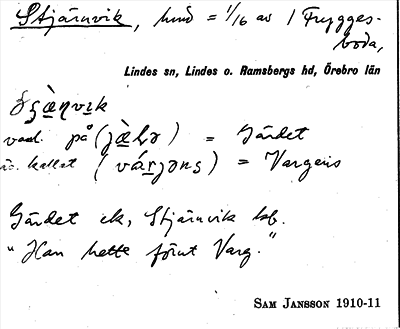 Stjärnvik, hmd = 1/16 av 1 Frygges-
boda,
Lindes sn, Lindes o. Ramsbergs hd, Örebro län
vard. på (jæ̀ḷə) = Gärdet
äv. kallat (várjəns) = Vargens
Gärdet ek, Stjärnvik kf.
"Han hette förut Varg."
SAM JANSSON 1910-11